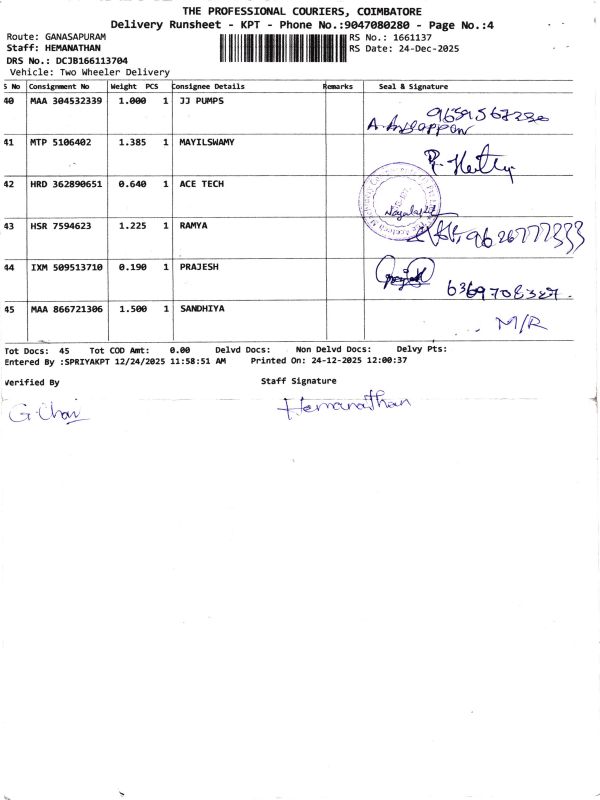 THE PROFESSIONAL COURIERS, COIMBATORE
Delivery Runsheet - KPT - Phone No.:9047080280 - Page No.:4
Route: GANASAPURAM RS No.: 1661137
Staff: HEMANATHAN RS Date: 24-Dec-2025
DRS No.: DCJB166113704
Vehicle: Two Wheeler Delivery
S No Consignment No Weight PCS Consignee Details Remarks Seal & Signature
40 MAA 304532339 1.000 1 JJ PUMPS
41 MTP 5106402 1.385 1 MAYILSWAMY
42 HRD 362890651 0.640 1 ACE TECH
43 HSR 7594623 1.225 1 RAMYA 9626777333
44 IXM 509513710 0.190 1 PRAJESH 6369708327
45 MAA 866721306 1.500 1 SANDHIYA M/R
Tot Docs: 45 Tot COD Amt: 0.00 Delvd Docs: Non Delvd Docs: Delvy Pts:
Entered By :SPRIYAKPT 12/24/2025 11:58:51 AM Printed On: 24-12-2025 12:00:37
Verified By Staff Signature
Hemanathan